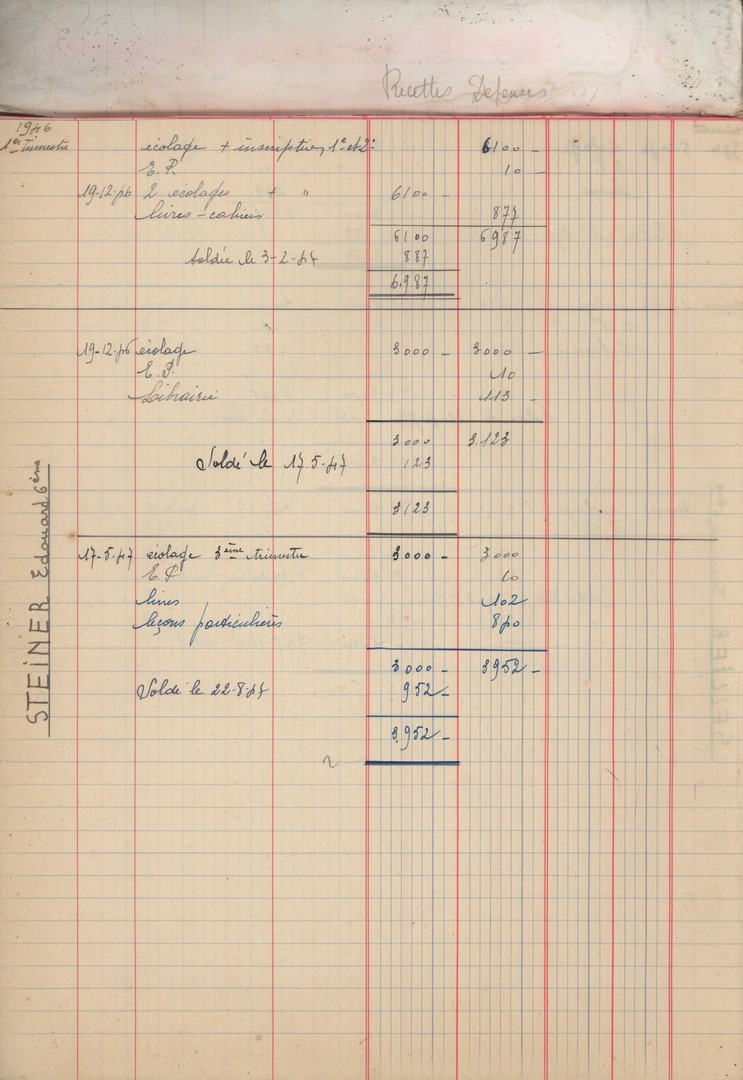 Recettes Dépenses
1946
1er trimestre écolage + inscription 1e et 2e 6100 -
E. P. 10 -
19-12-46 2 écolages + " 6100 -
livres - cahiers 877
6100 6987
Soldée le 3-2-47 887
6.987
19-12-46 écolage 3000 - 3000 -
E. P. 10
Librairie 113 -
3000 3.123
Soldé le 17.5-47 123
3123
17-5-47 écolage 3ème trimestre 3000 - 3000
E. P 10
livres 102
leçons particulières 840
3000 - 3952 -
Soldé le 22-8-47 952 -
3.952 -
STEINER Edouard 6ème